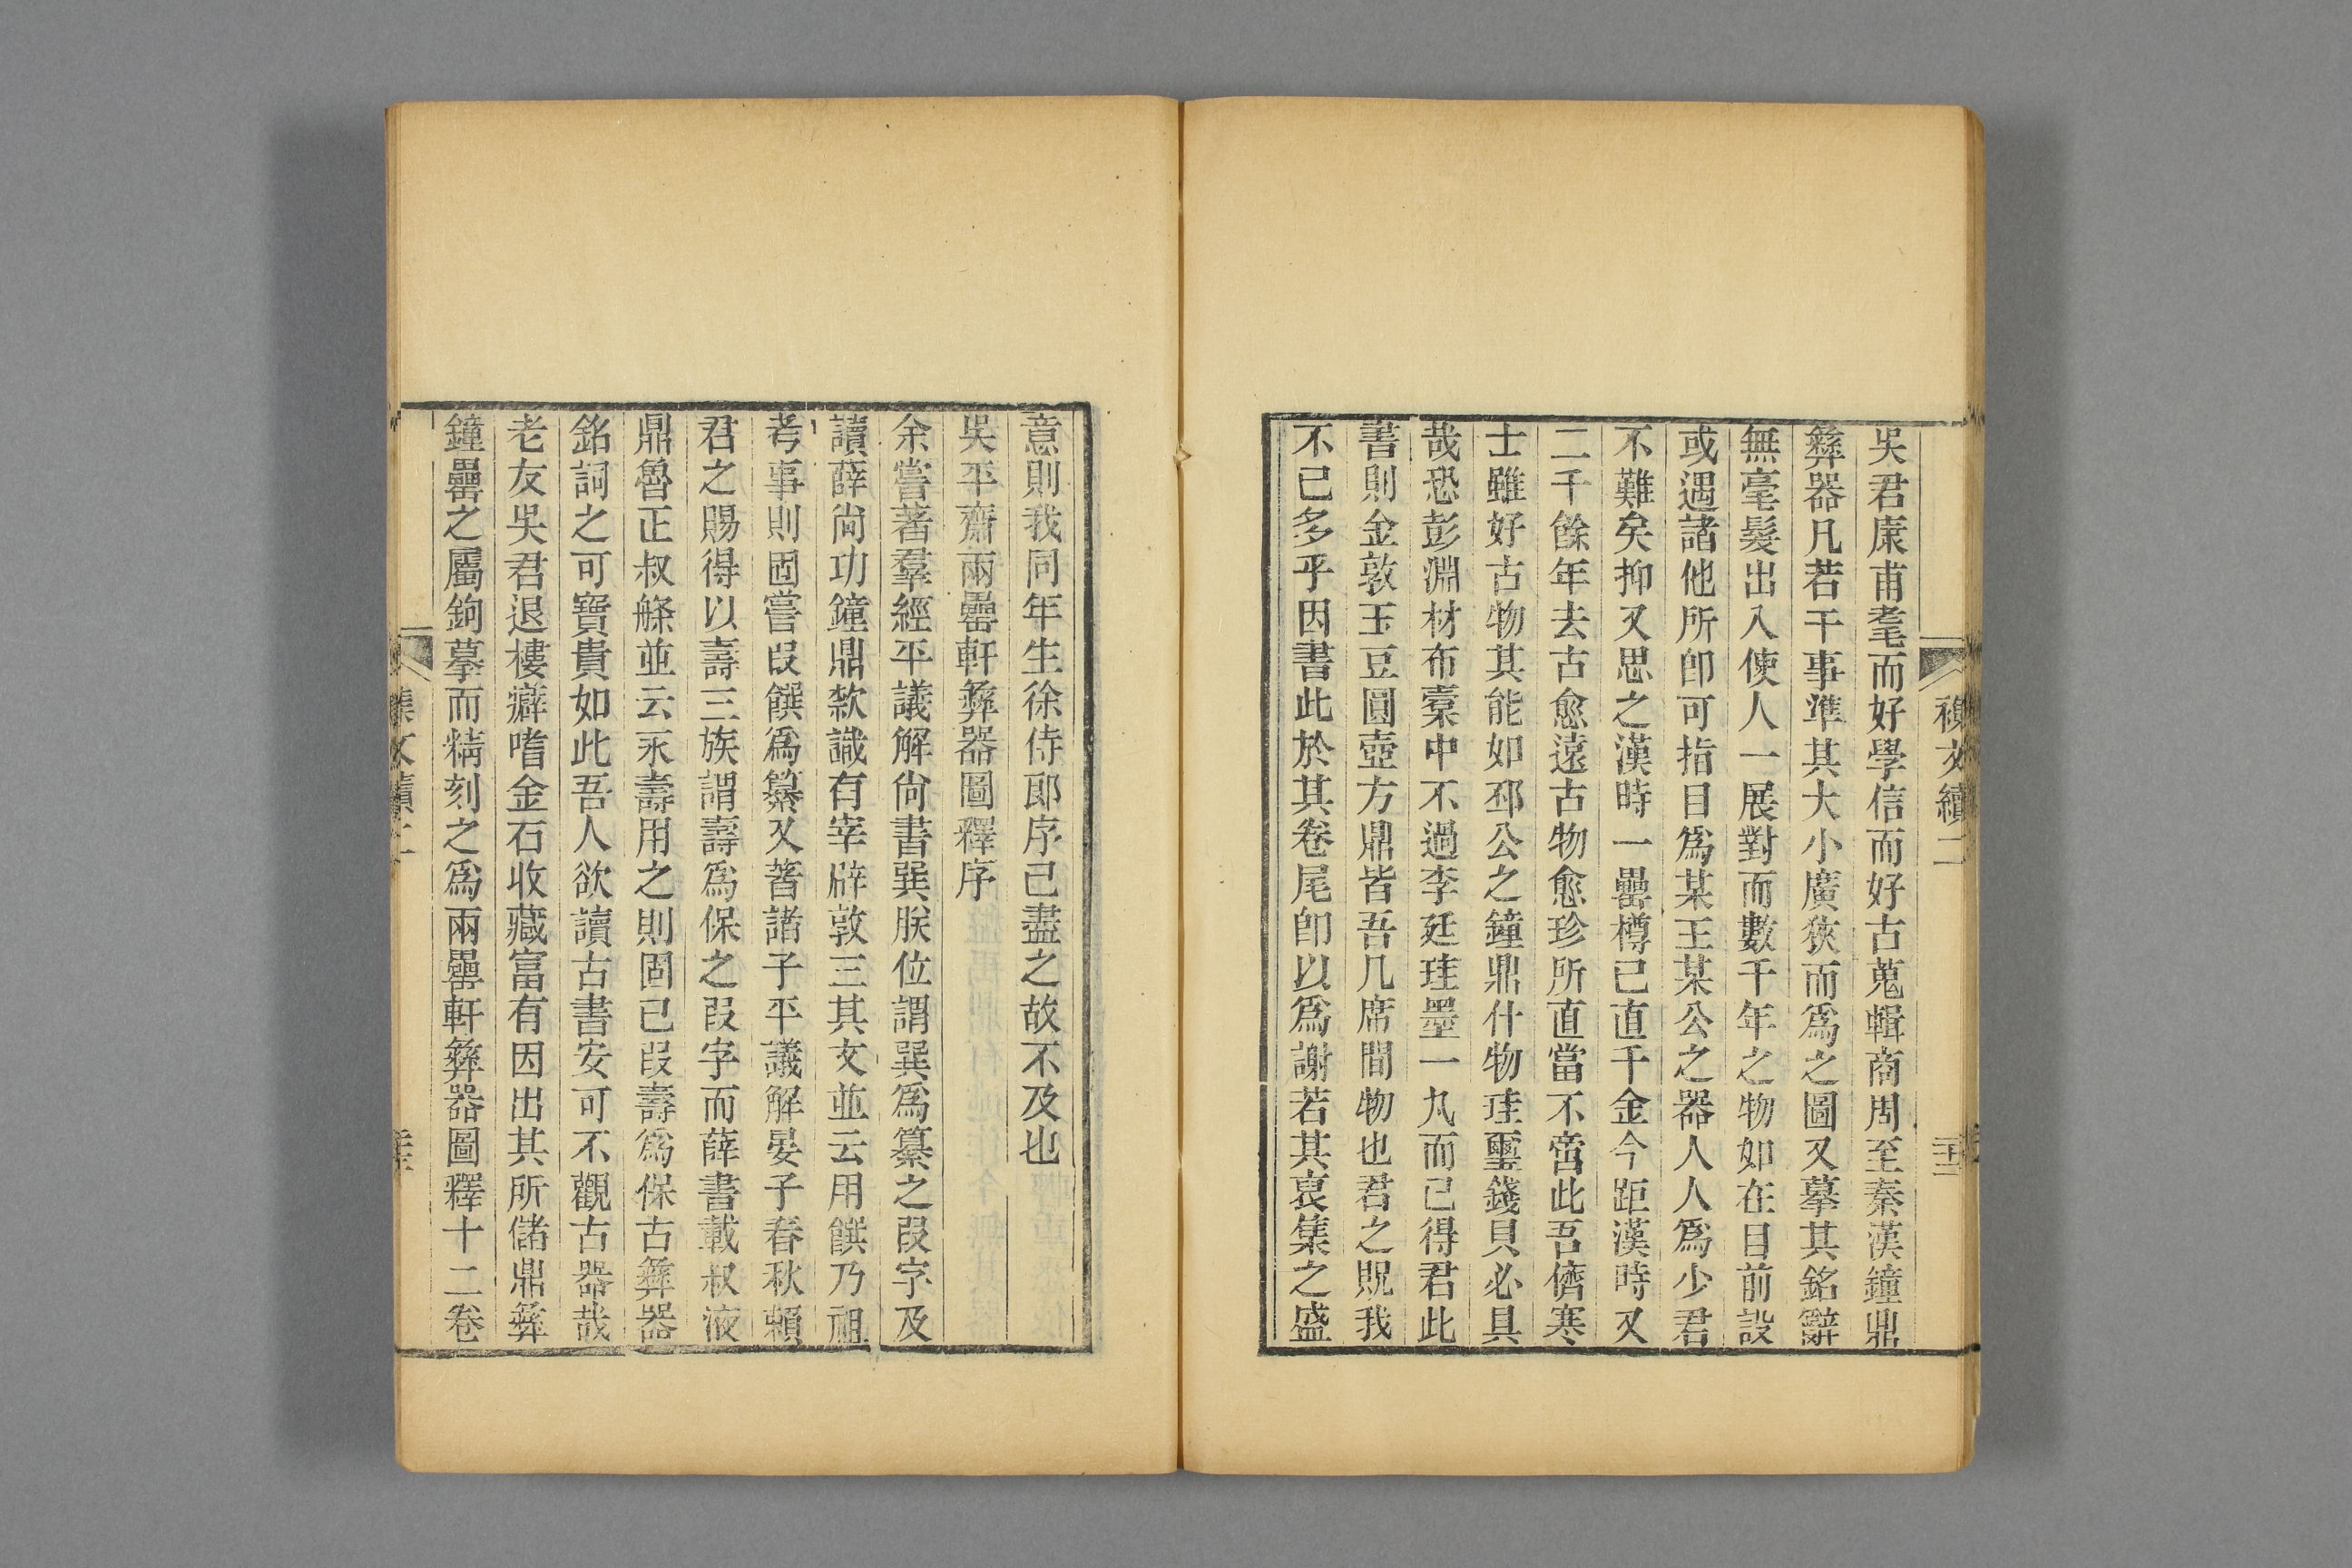 襍文續二
吳君康甫耄而好學信而好古蒐輯商周至秦漢鐘鼎
彝器凡若干事準其大小廣狹而爲之圖又摹其銘辭
無毫髮出入使人一展對而數千年之物如在目前設
或遇諸他所卽可指目爲某王某公之器人人爲少君
不難矣抑又思之漢時一罍樽已直千金今距漢時又
二千餘年去古愈遠古物愈珍所直當不啻此吾儕寒
士雖好古物其能如邳公之鐘鼎什物珪璽錢貝必具
哉恐彭淵材布橐中不過李廷珪墨一丸而已得君此
書則金敦玉豆圓壺方鼎皆吾几席間物也君之貺我
不已多乎因書此於其卷尾卽以爲謝若其裒集之盛
意則我同年生徐侍郎序已盡之故不及也
吳平齋兩罍軒彝器圖釋序
余嘗著羣經平議解尙書巽朕位謂巽爲纂之叚字及
讀薛尙功鐘鼎款識有宰辟敦三其文並云用饌乃祖
考事則固嘗叚饌爲纂又著諸子平議解晏子春秋賴
君之賜得以壽三族謂壽爲保之叚字而薛書載叔液
鼎魯正叔𣪘並云永壽用之則固已叚壽爲保古彝器
銘詞之可寶貴如此吾人欲讀古書安可不觀古器哉
老友吳君退樓癖嗜金石收藏富有因出其所儲鼎彝
鐘罍之屬鉤摹而精刻之爲兩罍軒彝器圖釋十二卷
文續二